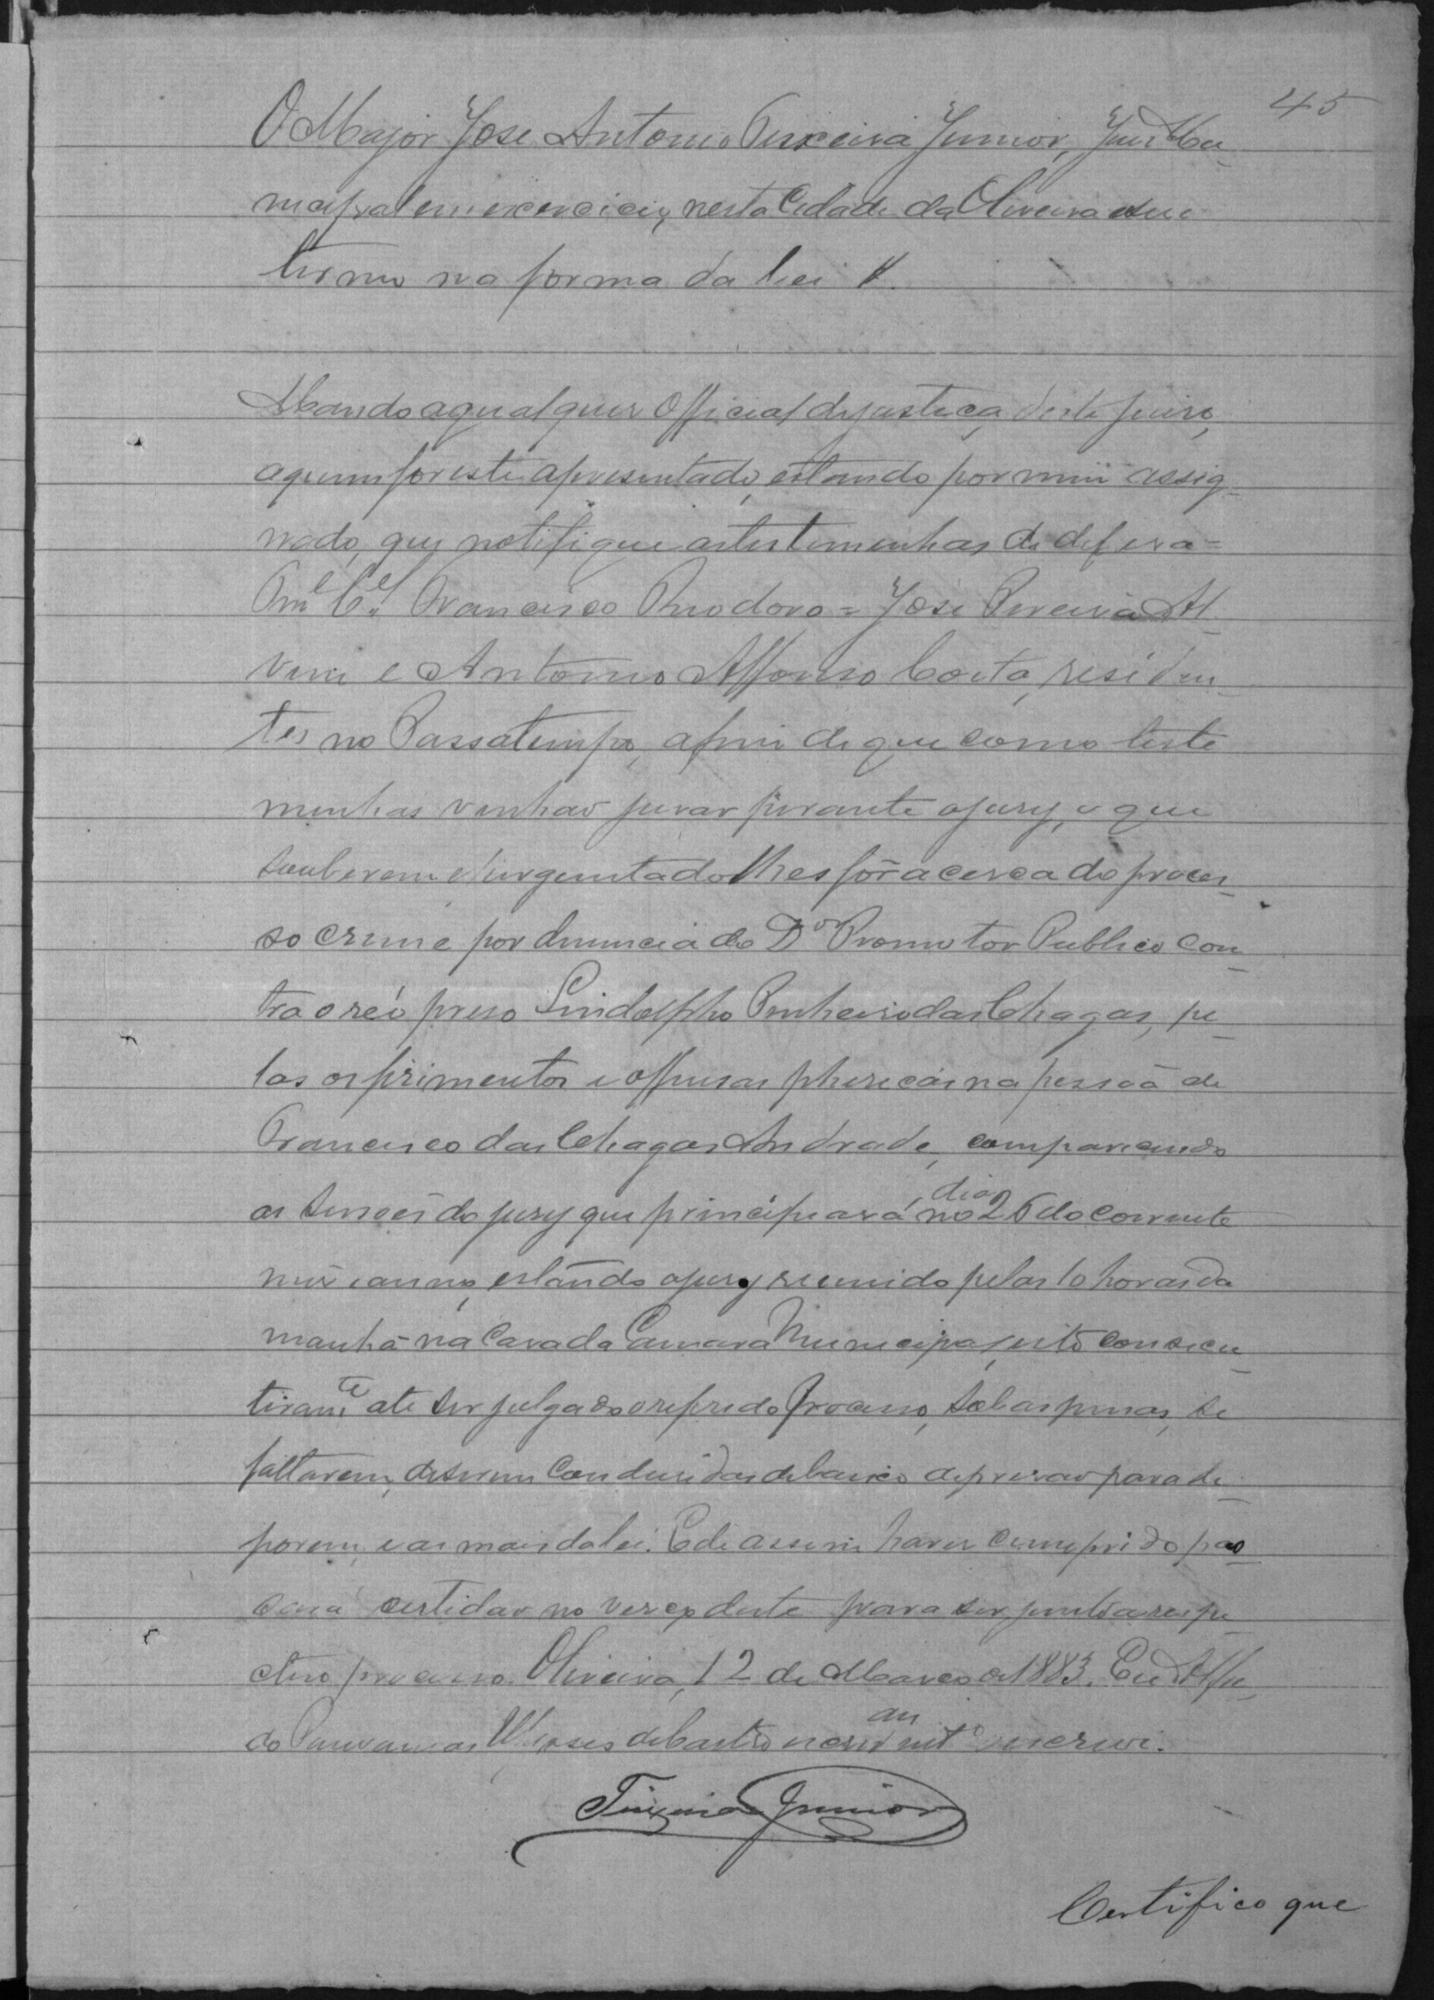 45
O Major José Antonio Teixeira Junior, Juiz Mu-
nicipal em exercicio, nesta Cidade da Oliveira e seu
termo na forma da lei &.
Mando a qualquer Official de justiça deste juiso,
a quem for este apresentado, estando por mim assig-
nado, que notifique as testemunhas de defesa =
Francisco Theodoro = José Pereira Al-
vim e Antonio Affonso Costa, residen-
tes no Passatempo, afim de que como teste
munhas venhão jurar perante o jury, o que
souberem e pergumtado lhes fôr acerca do proces-
so crime por denuncia do Dor Promotor Publico con-
tra o reó preso Lindolpho Pinheiro das Chagas, pe-
los os firimentos e offensas phesecas na pessoa de
Francisco das Chagas Andrade, comparecendo
as sessoes do jury que principiará no dia 26 do corrente
mez e anno, estando o jury reunido pelas 10 horas da
manhã na Casa da Camara Municipal, isto consecu-
tivamte até ser julgado o referido Processo, sob as penas, se
faltarem, de serem condusidas debaixo de prizão para de-
porem, e as mais da lei. E de assim haver cumprido pas-
sará certidão no verso deste para ser junta ao respe
ctivo processo. Oliveira, 12 de Março de 1883. Eu
de Castro escrivão o escrevi.
Teixeira Junior
Certifico que